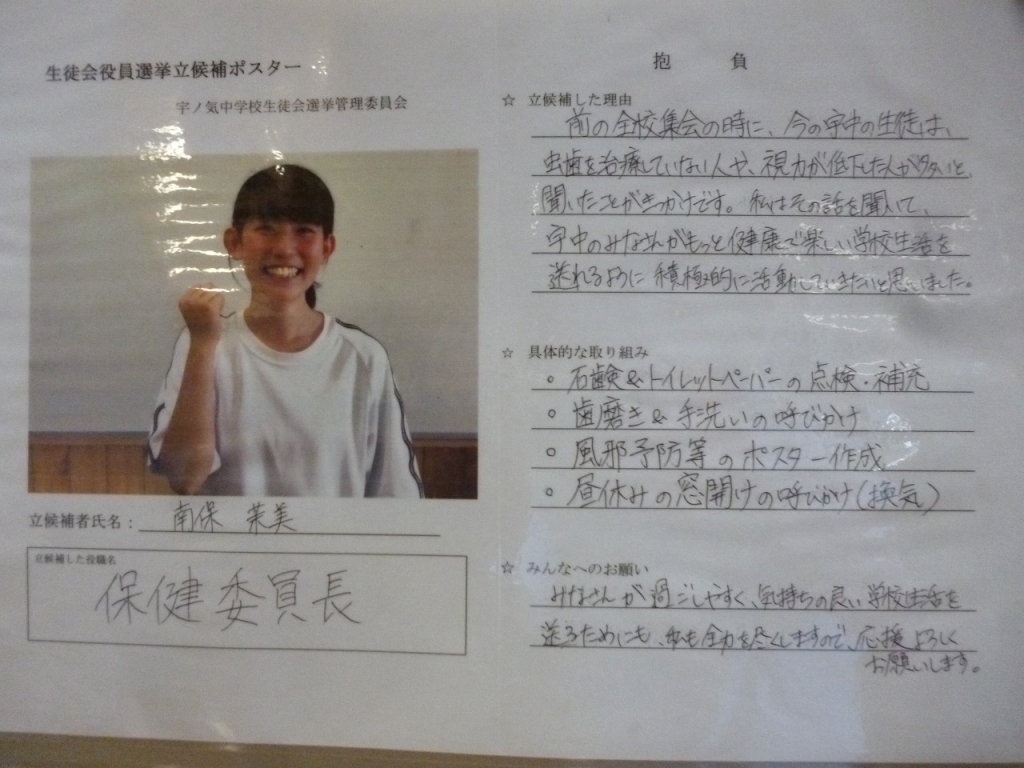 生徒会役員選挙立候補ポスター
宇ノ気中学校生徒会選挙管理委員会
立候補者氏名：南保 茉美
立候補した役職名
保健委員長
抱 負
☆ 立候補した理由
前の全校集会の時に、今の宇中の生徒は、
虫歯を治療していない人や、視力が低下した人が多いと
聞いたことがきっかけです。私はその話を聞いて、
宇中のみなさんがもっと健康で楽しい学校生活を
送れるように積極的に活動していきたいと思いました。
☆ 具体的な取り組み
○ 石鹸&トイレットペーパーの点検・補充
○ 歯磨き&手洗いの呼びかけ
○ 風邪予防等のポスター作成
○ 昼休みの窓開けの呼びかけ(換気)
☆ みんなへのお願い
みなさんが過ごしやすく、気持ちの良い学校生活を
送るためにも、私も全力を尽くしますので、応援よろしく
お願いします。